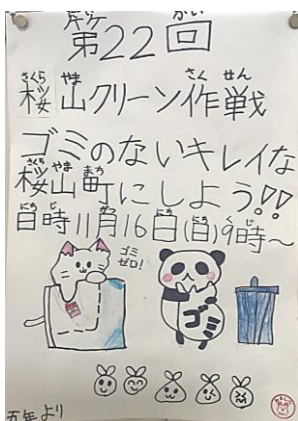 第22回
桜山クリーン作戦
ゴミのないキレイな
桜山町にしよう!!
日時11月16日(日)9時〜
ゴミ
ゼロ!
ゴミ
五年より